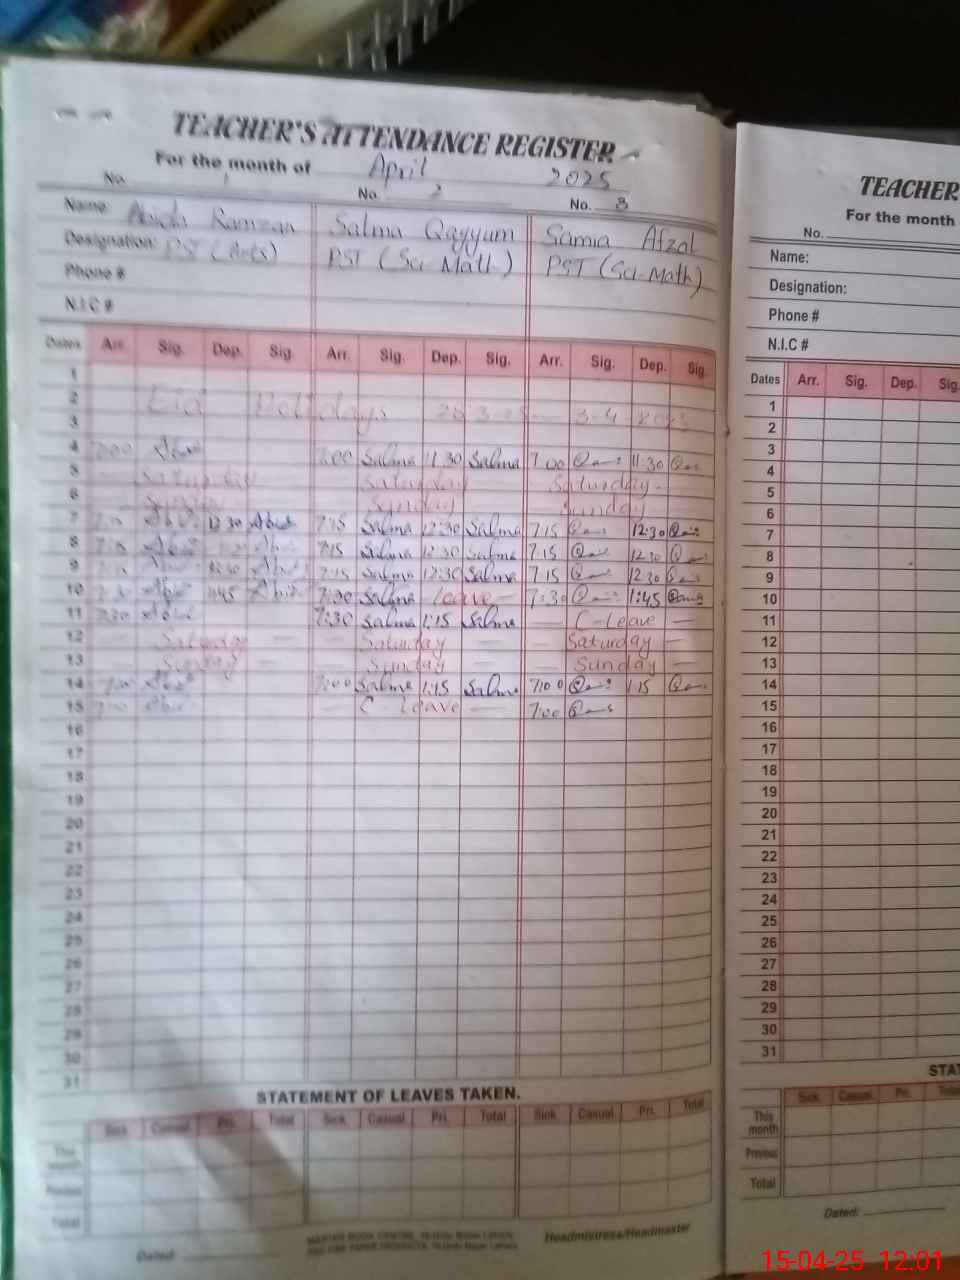 TEACHER'S ATTENDANCE REGISTER
For the month of April 2025
No. 1 No. 2 No. 3
Name: Ramzan Salma Qayyum Samia Afzal
Designation: PST (Arts) PST (Sci-Math) PST (Sci-Math)
Phone #
N.I.C #
Dates Arr. Sig. Dep. Sig. Arr. Sig. Dep. Sig. Arr. Sig. Dep. Sig.
1
2 Eid Holidays 3-4
3
4 7:00 7:00 Salma 11:30 Salma 7:00 11:30
5 Saturday Saturday Saturday
6 Sunday Sunday Sunday
7 12:30 7:15 Salma 12:30 Salma 7:15 12:30
8 7:15 7:15 Salma 12:30 Salma 7:15 12:30
9 12:30 7:15 Salma 12:30 Salma 7:15 12:30
10 7:30 1:45 7:00 Salma Leave 7:30 1:45
11 7:30 7:30 Salma 1:15 Salma C-Leave
12 Saturday Saturday Saturday
13 Sunday Sunday Sunday
14 7:00 7:00 Salma 1:15 Salma 7:00 1:15
15 7:00 C-Leave 7:00
16
17
18
19
20
21
22
23
24
25
26
27
28
29
30
31
STATEMENT OF LEAVES TAKEN.
Sick Casual Pri. Total Sick Casual Pri. Total Sick Casual Pri. Total
This month
Previous
Total
Dated:
Headmistress/Headmaster
TEACHER
For the month
No.
Name:
Designation:
Phone #
N.I.C #
Dates Arr. Sig. Dep. Sig.
1
2
3
4
5
6
7
8
9
10
11
12
13
14
15
16
17
18
19
20
21
22
23
24
25
26
27
28
29
30
31
STAT
Sick Casual Pri. Total
This month
Previous
Total
Dated:
15-04-25 12:01